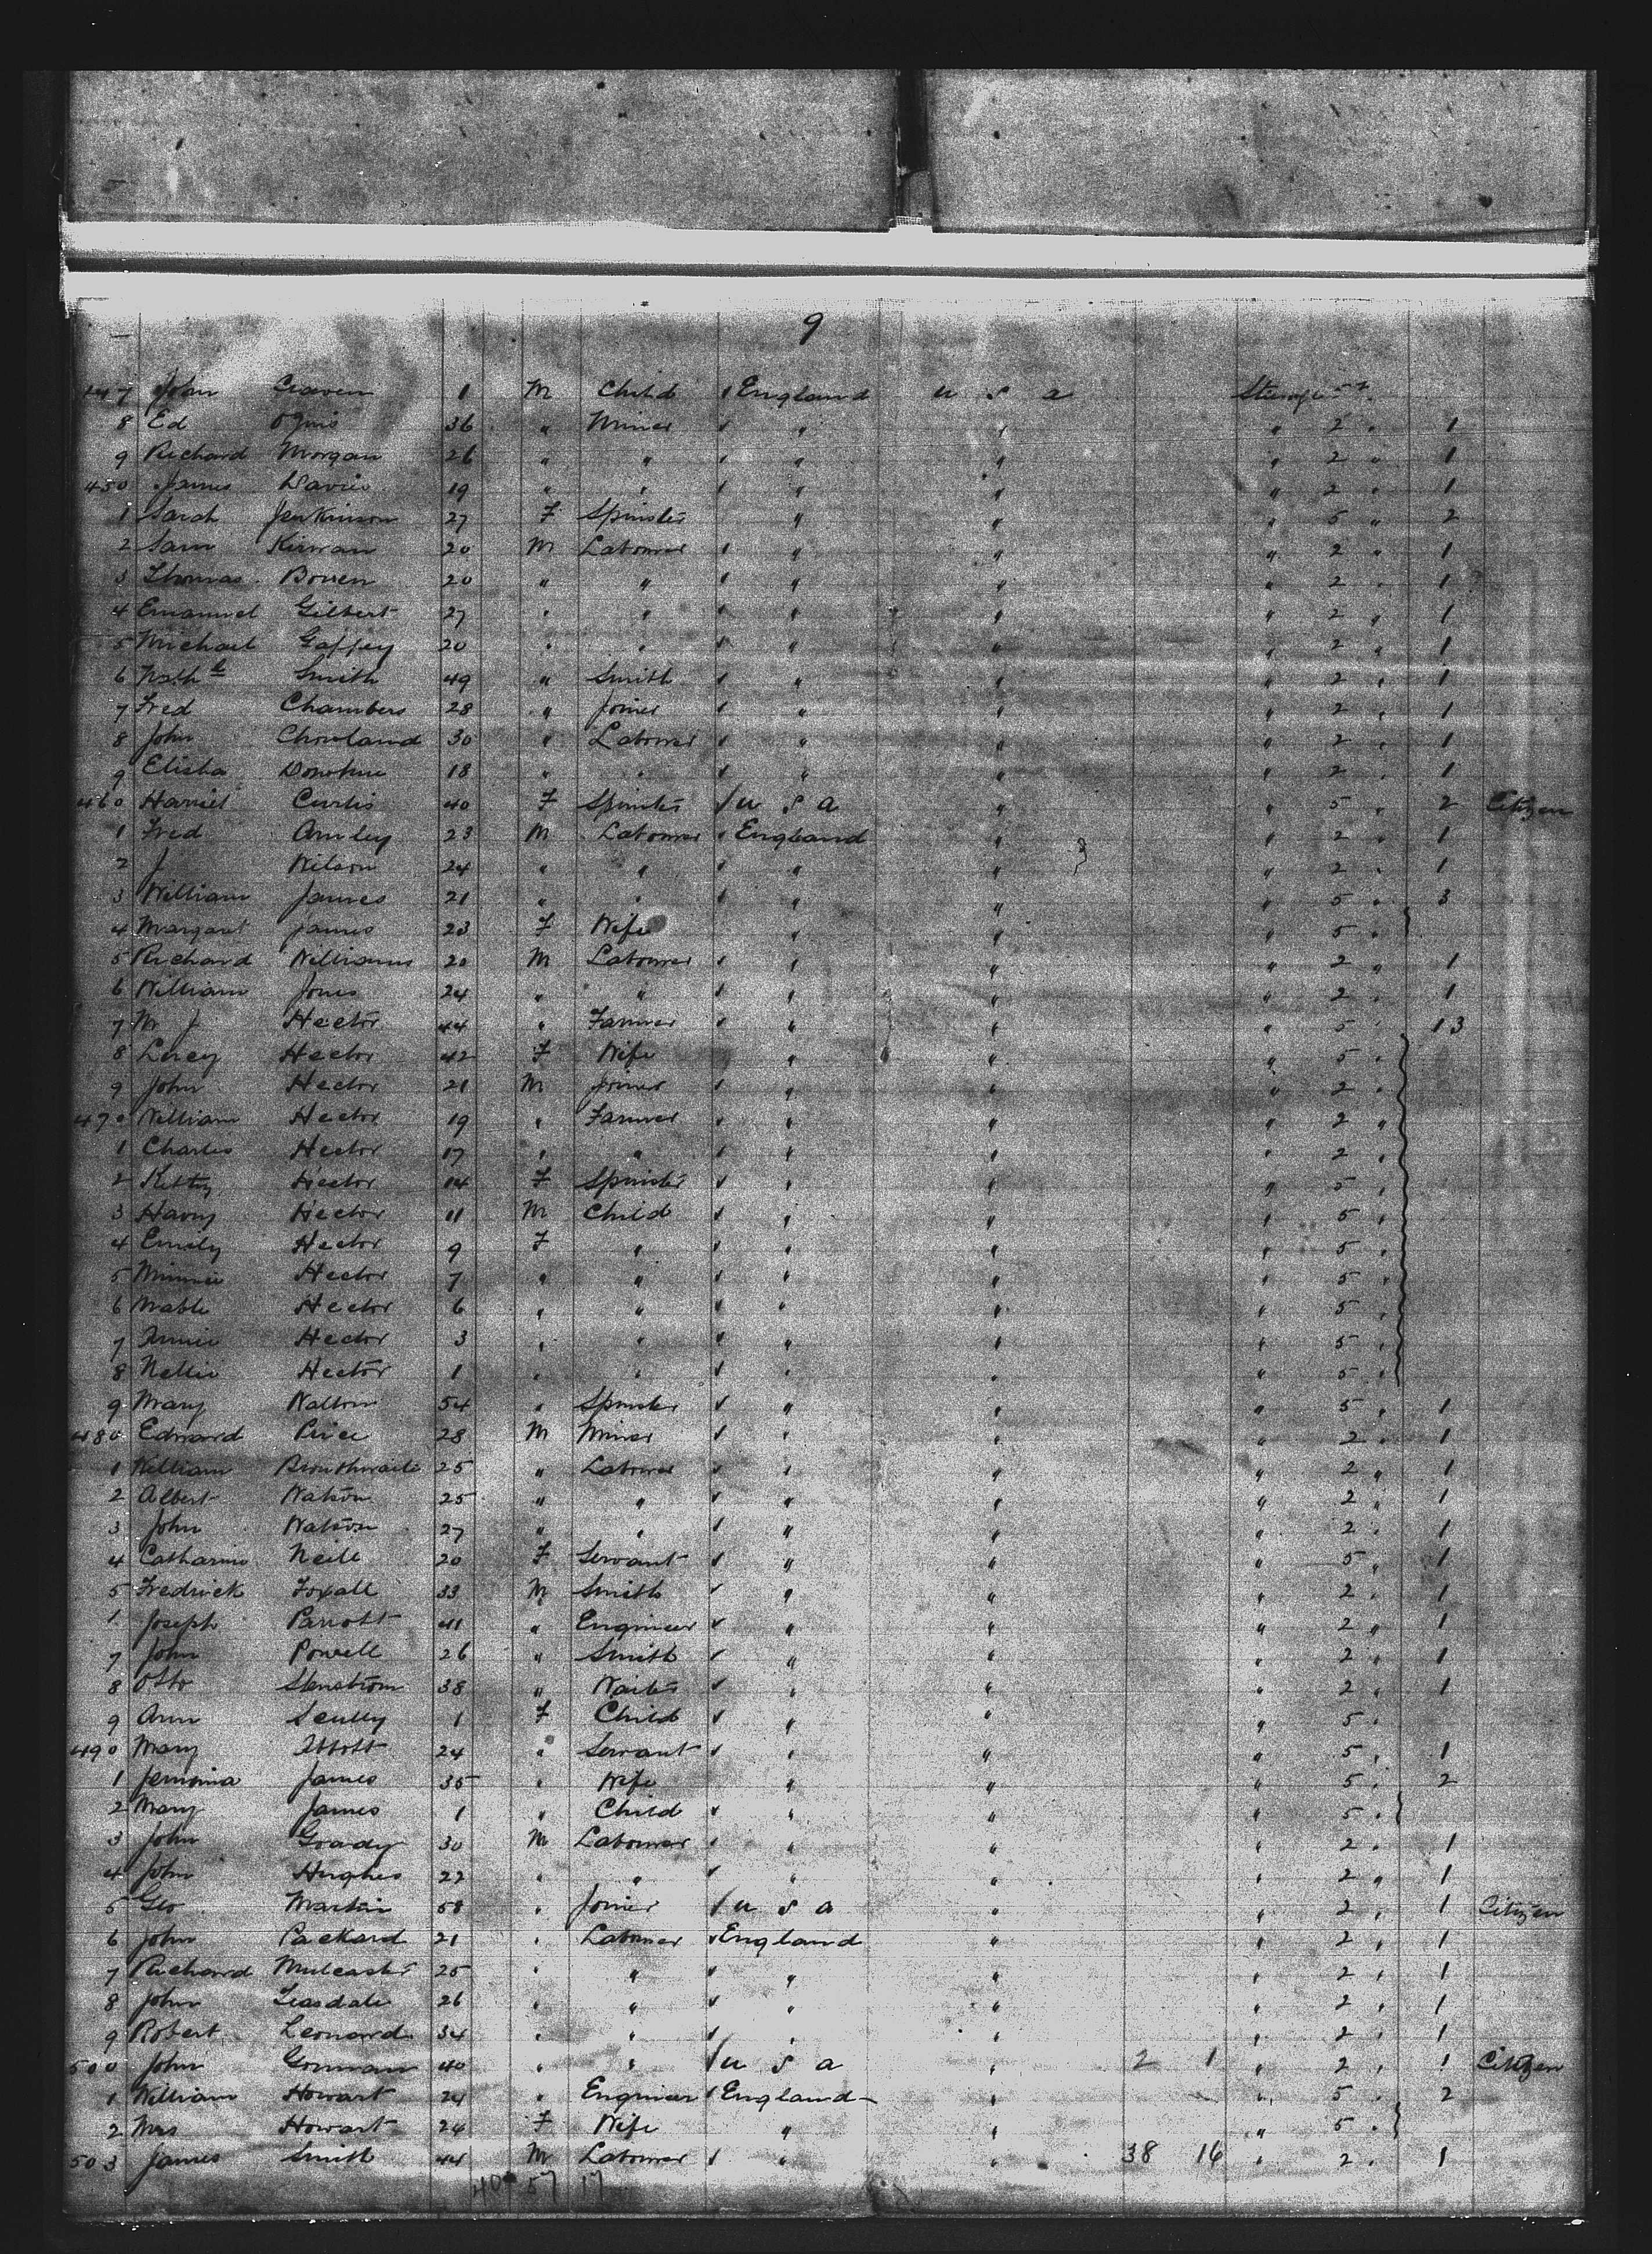 9
447 John Craven 1 M Child England U S A Steerage
8 Ed 36 " Miner " " " 2 " 1
9 Richard Morgan 26 " " " " " 2 " 1
450 James Davies 19 " " " " " 2 " 1
1 Sarah Jenkinson 27 F Spinster " " " 5 " 2
2 Sam Kirwan 20 M Labourer " " " 2 " 1
3 Thomas Bowen 20 " " " " " 2 " 1
4 Emanuel Gilbert 27 " " " " " 2 " 1
5 Michael Gaffey 20 " " " " " 2 " 1
6 Nath Smith 49 " Smith " " " 2 " 1
7 Fred Chambers 28 " Joiner " " " 2 " 1
8 John Chowland 30 " Labourer " " " 2 " 1
9 Elisha Donohue 18 " " " " " 2 " 1
460 Harriet Curtis 40 F Spinster U S A " " 5 " 2 Citizen
1 Fred Amley 23 M Labourer England " " 2 " 1
2 J Wilson 24 " " " " " 2 " 1
3 William James 21 " " " " " 5 " 3
4 Margaret James 23 F Wife " " " 5 "
5 Richard Williams 20 M Labourer " " " 2 " 1
6 William Jones 24 " " " " " 2 " 1
7 J Hector 44 " Farmer " " " 5 " 13
8 Hector 42 F Wife " " " 5 "
9 John Hector 21 M Joiner " " " 2 "
470 William Hector 19 " Farmer " " " 2 "
1 Charles Hector 17 " " " " " 2 "
2 Kitty Hector 14 F Spinster " " " 5 "
3 Harry Hector 11 M Child " " " 5 "
4 Emily Hector 9 F " " " " 5 "
5 Minnie Hector 7 " " " " " 5 "
6 Mable Hector 6 " " " " " 5 "
7 Annie Hector 3 " " " " " 5 "
8 Nellie Hector 1 " " " " " 5 "
9 Mary Walton 54 " Spinster " " " 5 " 1
480 Edward Price 28 M Miner " " " 2 " 1
1 William 25 " Labourer " " " 2 " 1
2 Albert Watson 25 " " " " " 2 " 1
3 John Watson 27 " " " " " 2 " 1
4 Catharine Neill 20 F Servant " " " 5 " 1
5 Fredrick Foxall 33 M Smith " " " 2 " 1
Joseph Parrott 41 " Engineer " " " 2 " 1
7 John Powell 26 " Smith " " " 2 " 1
8 Otto Stenstrom 38 " Waiter " " " 2 " 1
9 Ann Scully 1 F Child " " " 5 "
490 Mary Abbott 24 " Servant " " " 5 " 1
1 Jemima James 35 " Wife " " " 5 " 2
2 Mary James 1 " Child " " " 5 "
3 John Grady 30 M Labourer " " " 2 " 1
4 John Hughes 22 " " " " " 2 " 1
5 Geo Martin 58 " Joiner U S A " " 2 " 1 Citizen
6 John Packard 21 " Labourer England " " 2 " 1
7 Richard Mulcaster 25 " " " " " 2 " 1
8 John Teasdale 26 " " " " " 2 " 1
9 Robert Leonard 34 " " " " " 2 " 1
500 John Gorman 40 " " U S A " 2 1 " 2 " 1 Citizen
1 William Howart 24 " Engineer England " " 5 " 2
2 Mrs Howart 24 F Wife " " " 5 "
503 James Smith 44 M Labourer " " 38 16 " 2 " 1
40 57 17